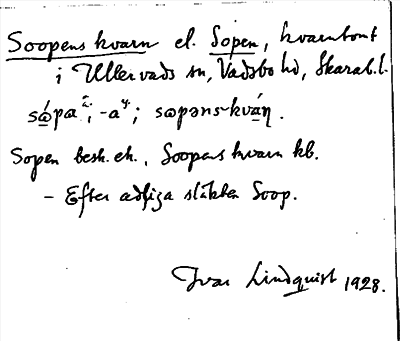 Soopens kvarn el. Sopen, kvarntomt
i Ullervads sn, Vadsbo hd, Skarab.l.
sɷ́pa, -a; sɷpəns-kván.
Sopen besk. ek., Soopens kvarn kb.
- Efter adliga släkten Soop.
Ivar Lindquist 1928.